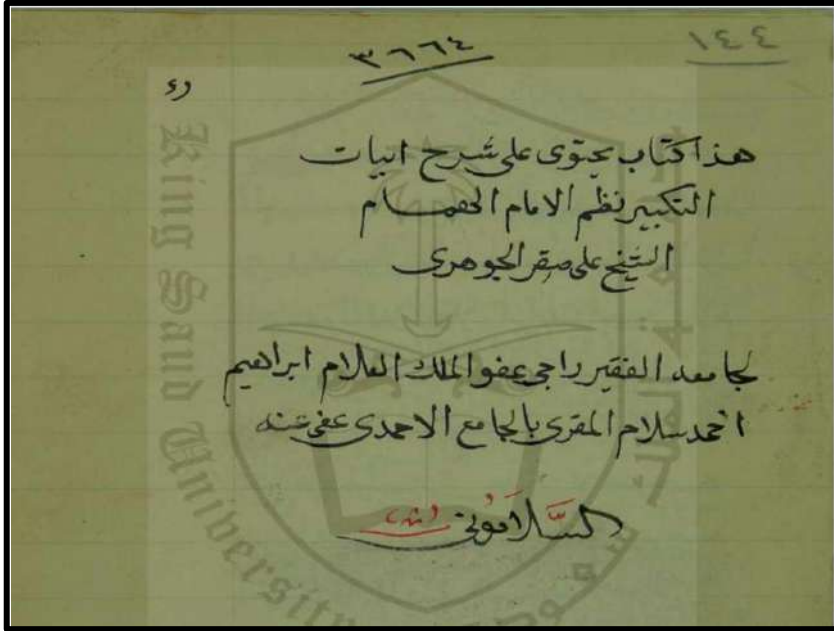 ١٤٤
٣٦٦٤
هذا كتاب يحتوى على شرح ابيات
التكبير نظم الامام الهمام
الشيخ على صقر الجوهرى
لجامعه الفقير راجى عفو الملك العلام ابراهيم
احمد سلام المقرى بالجامع الاحمدى عفى عنه
السَّلَامُونى
King Saud University